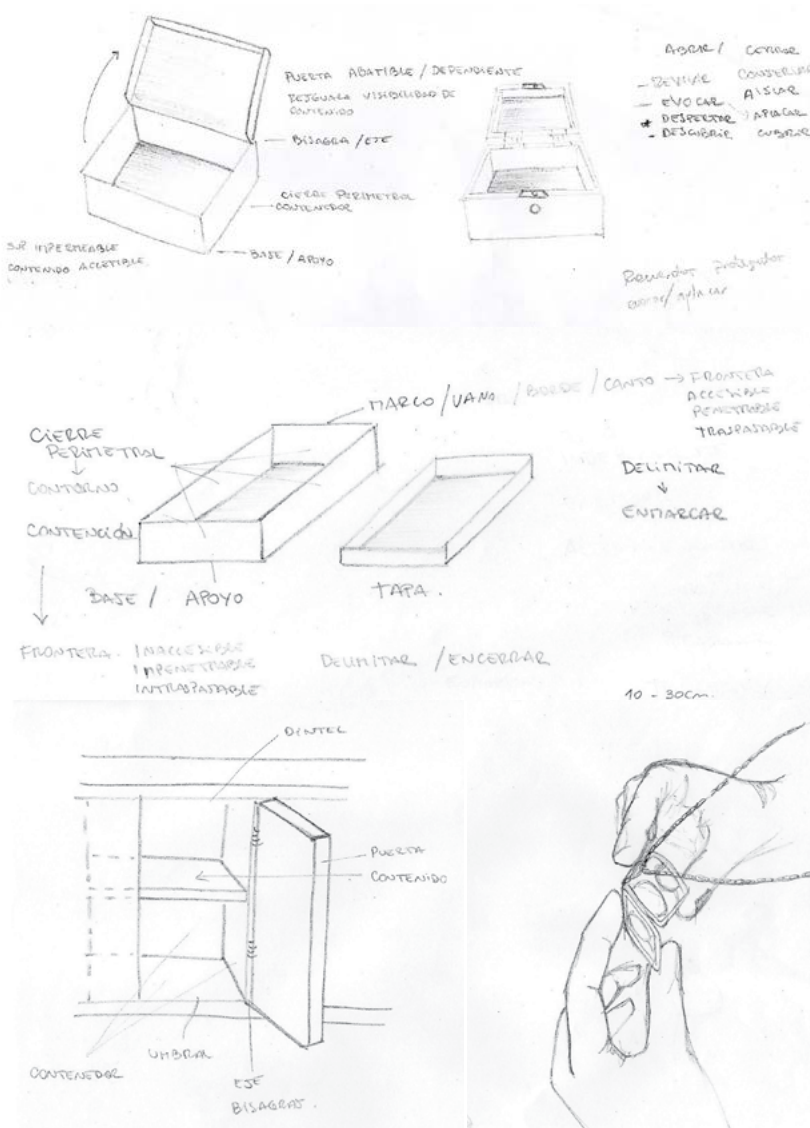 PUERTA ABATIBLE / DEPENDIENTE
RESGUARDA VISIBILIDAD DE
CONTENIDO
BISAGRA / EJE
CIERRE PERIMETRAL
CONTENEDOR
BASE / APOYO
SUP IMPERMEABLE
CONTENIDO ACCESIBLE.
ABRIR / CERRAR
- REVIVIR CONSERVAR
- EVOCAR AISLAR
* DESPERTAR APLACAR
- DESCUBRIR CUBRIR
Recuerdos protegidos
evocar/aplacar
MARCO/VANO/BORDE/CANTO → FRONTERA
ACCESIBLE
PENETRABLE
TRASPASABLE
CIERRE
PERIMETRAL
CONTORNO
CONTENCIÓN
BASE / APOYO
TAPA.
DELIMITAR
ENMARCAR
FRONTERA INACCESIBLE
IMPENETRABLE
INTRASPASABLE
DELIMITAR / ENCERRAR
10 - 30cm.
DINTEL
PUERTA
CONTENIDO
UMBRAL
CONTENEDOR
EJE
BISAGRAS.